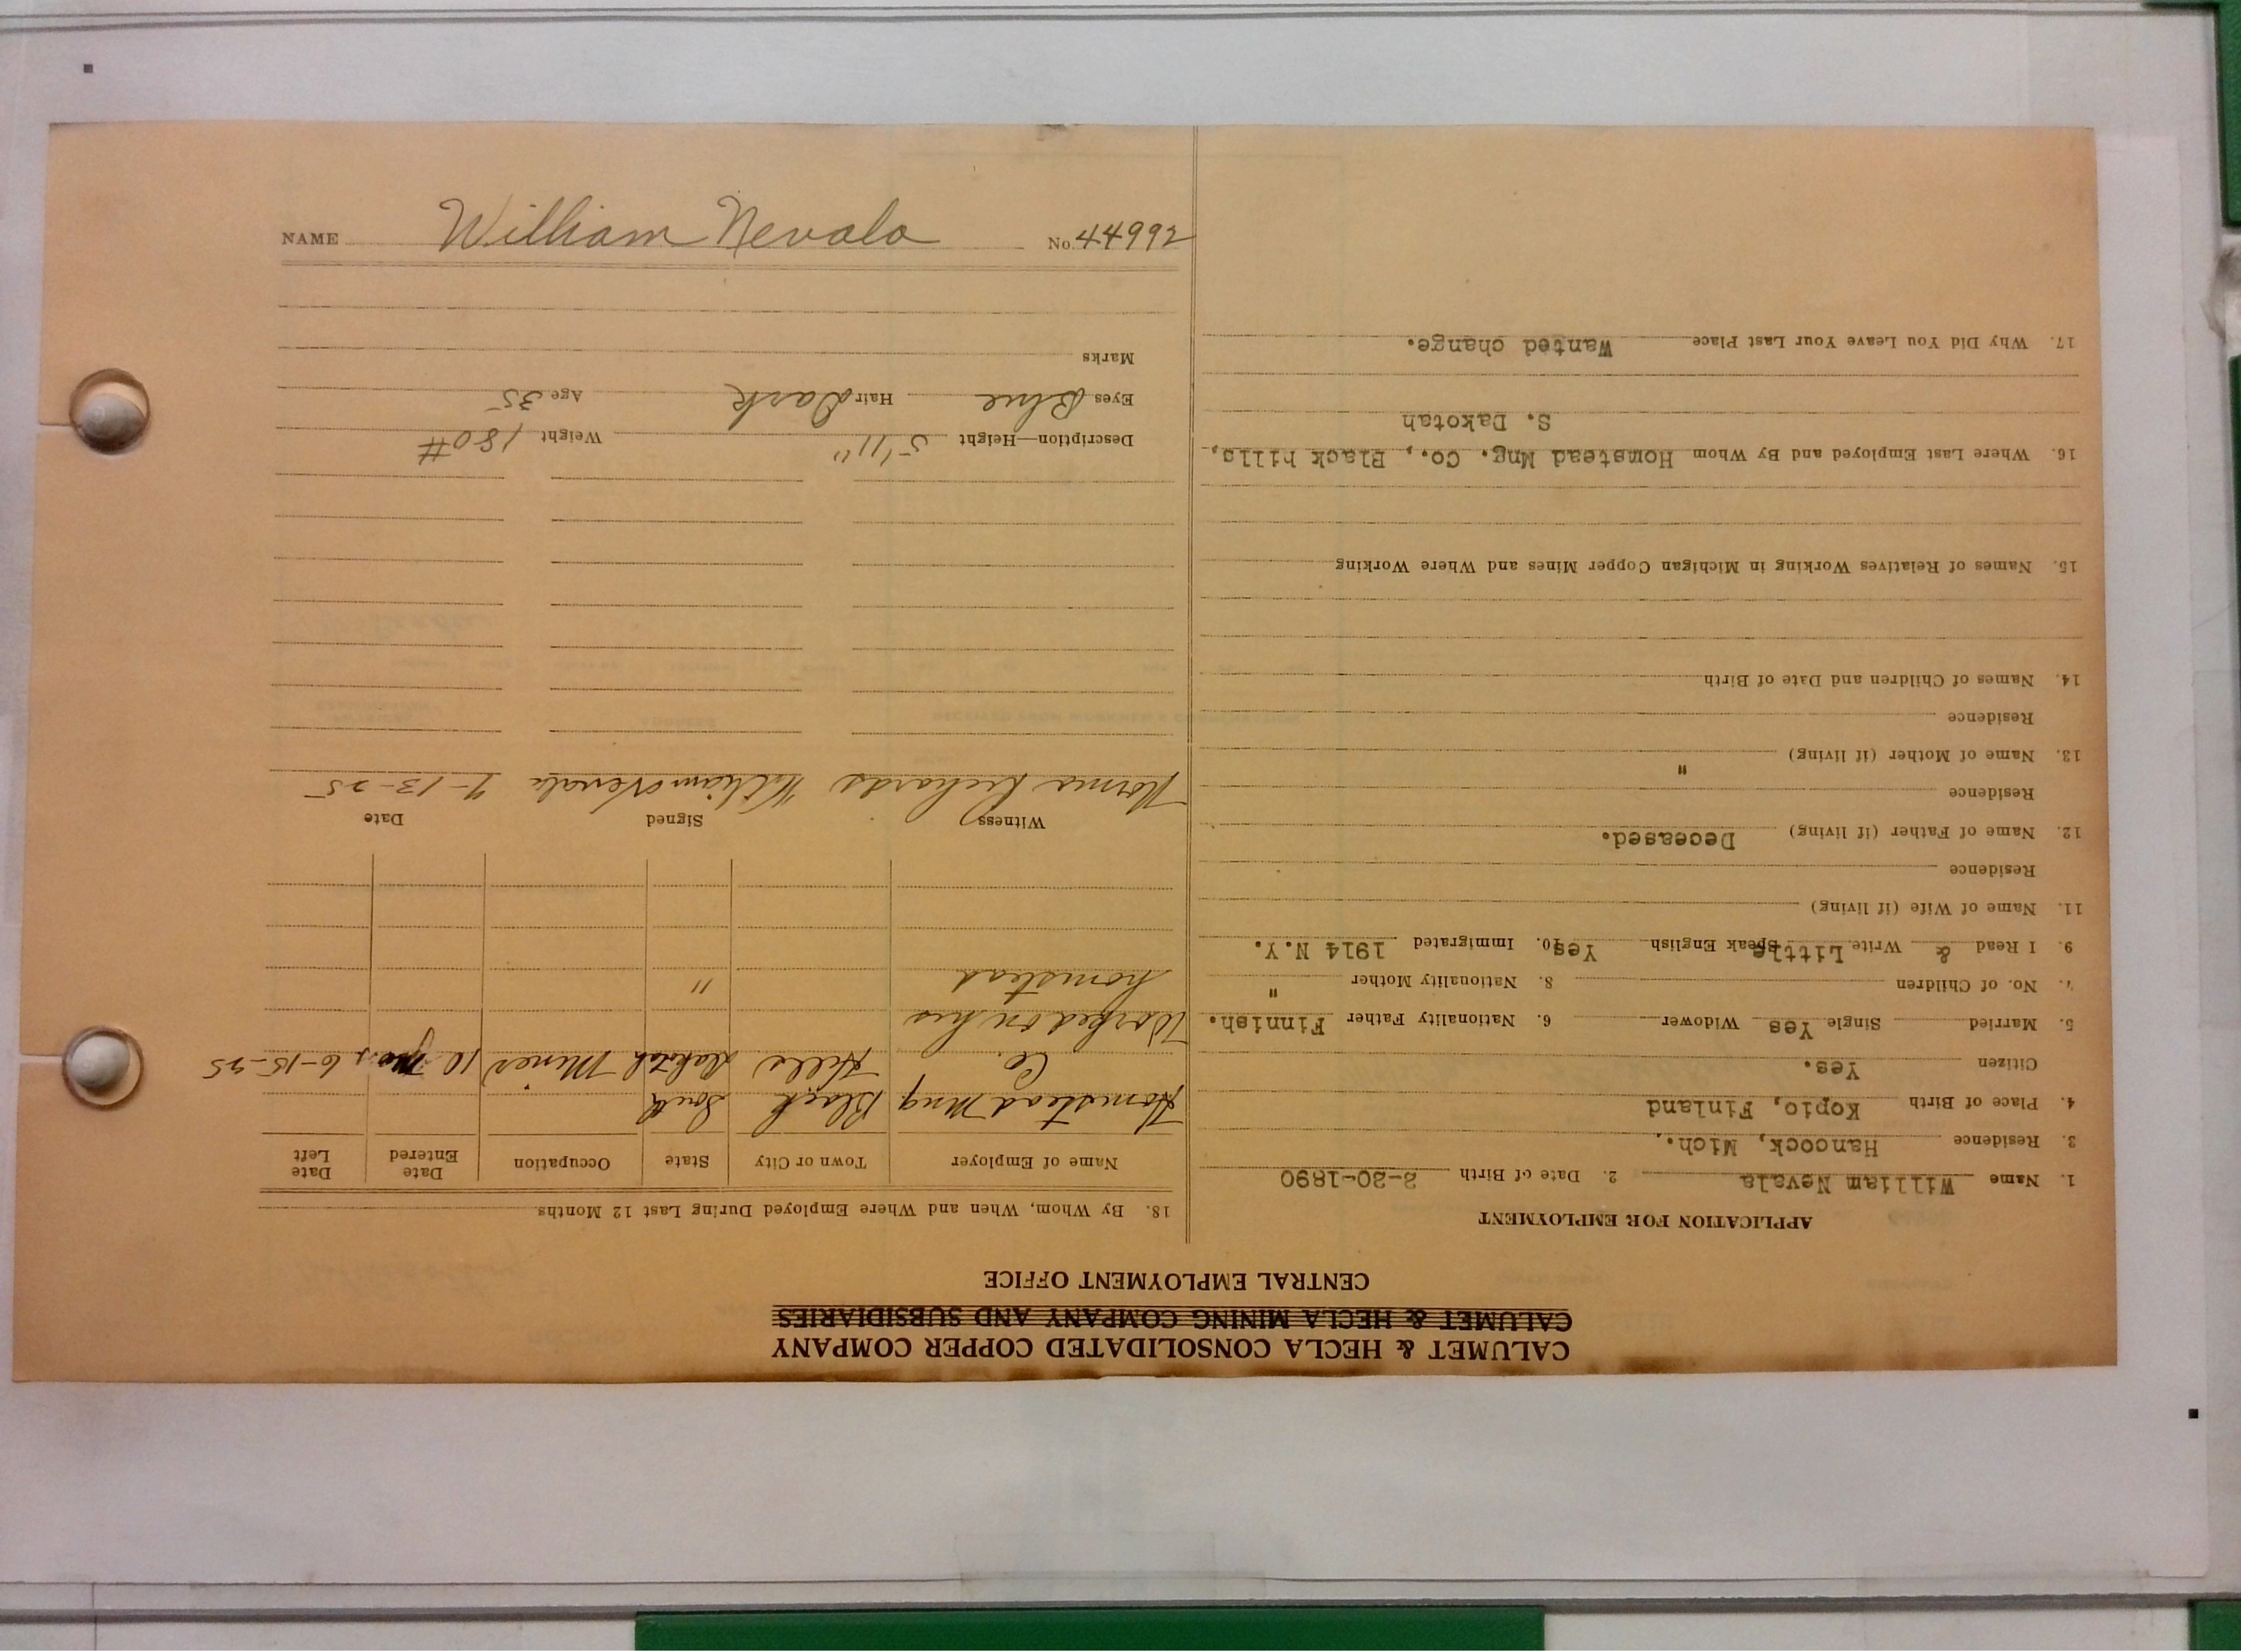 NAME William Nevala No. 44992
CALUMET & HECLA CONSOLIDATED COPPER COMPANY
CALUMET & HECLA MINING COMPANY AND SUBSIDIARIES
CENTRAL EMPLOYMENT OFFICE
APPLICATION FOR EMPLOYMENT
1. Name William Nevala 2. Date of Birth 2-20-1890
3. Residence Hancock, Mich.
4. Place of Birth Kopio, Finland
Citizen Yes.
5. Married Single Yes Widower 6. Nationality Father Finnish.
7. No. of Children 8. Nationality Mother "
9. I Read & Write Little Speak English Yes 10. Immigrated 1914 N.Y.
11. Name of Wife (if living)
Residence
12. Name of Father (if living) Deceased.
Residence
13. Name of Mother (if living) "
Residence
14. Names of Children and Date of Birth
15. Names of Relatives Working in Michigan Copper Mines and Where Working
16. Where Last Employed and By Whom Homstead Mng. Co., Black hills,
S. Dakotah
17. Why Did You Leave Your Last Place Wanted change.
18. By Whom, When and Where Employed During Last 12 Months
Name of Employer Town or City State Occupation Date Entered Date Left
Homstead Mng Black South
Co. Hills Dakotah Miner 10 mos 6-15-25
Worked on his
homstead "
Witness Signed Date
Richards William Nevala 7-13-25
Description—Height 5'11" Weight 180#
Eyes Blue Hair Dark Age 35
Marks